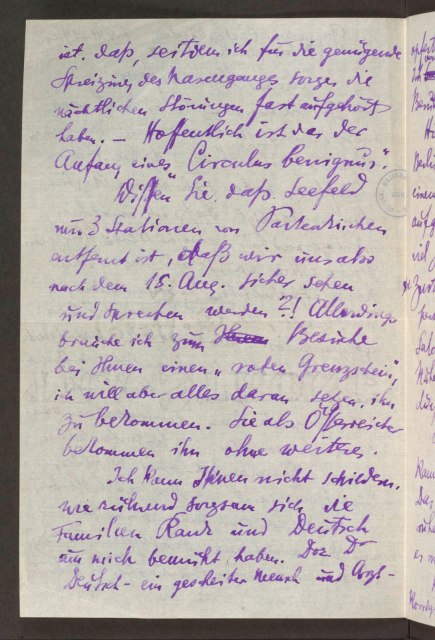 ist. daß, seitdem ich für die genügende
Spreizung des Nasenganges sorge, die
nächtlichen Störungen fast aufgehört
haben. – Hoffentlich ist das der
Anfang eines „Circulus benignus".
Wissen Sie, daß Seefeld
nur 3 Stationen von Partenkirchen
entfernt ist, daß wir uns also
nach dem 15. Aug. sicher sehen
und sprechen werden?! Allerdings
brauche ich zum Besuche
bei Ihnen einen „roten Grenzschein",
ich will aber alles daran setzen, ihn
zu bekommen. Sie als Österreicher
bekommen ihn ohne weiteres.
Ich kann Ihnen nicht schildern,
wie rührend sorgsam sich die
Familien Rank und Deutsch
um mich bemüht haben. Doz Dr
Deutsch – ein gescheiter Mensch und Arzt –